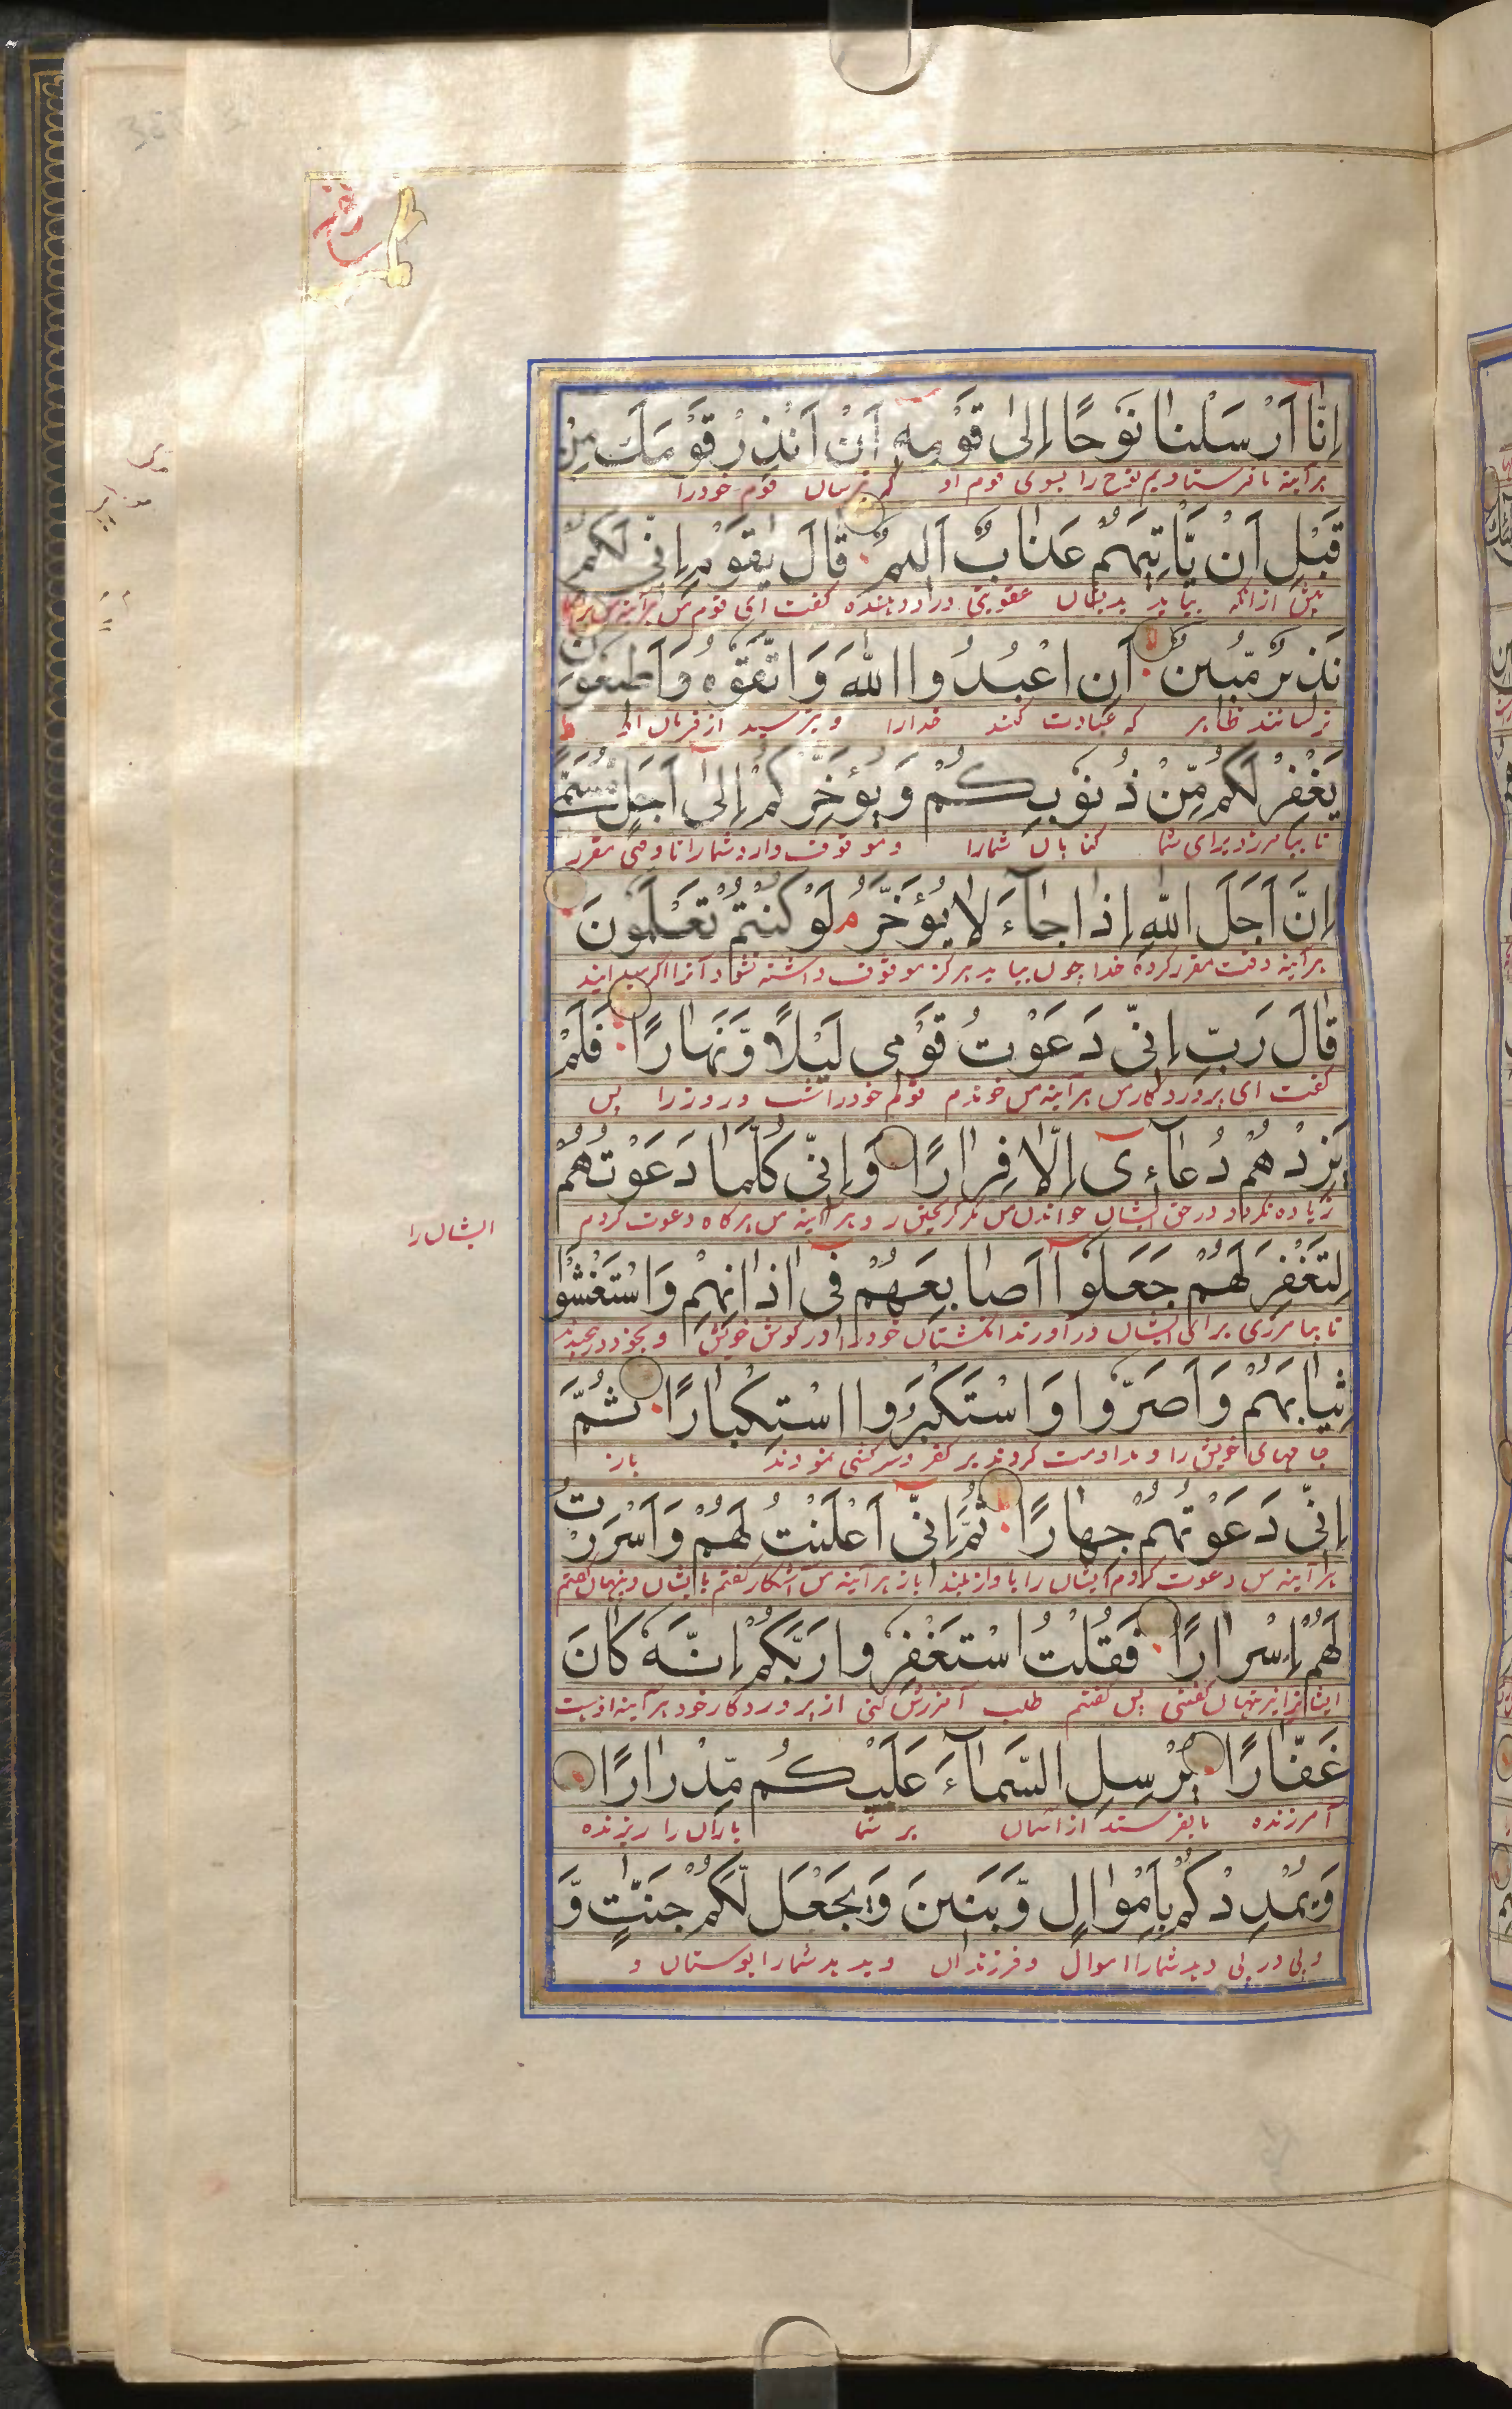 اِنَّا اَرْسَلْنَا نُوْحًا اِلٰى قَوْمِهٖ اَنْ اَنْذِرْ قَوْمَكَ مِنْ
برآینه ما فرستادیم نوح را بسوی قوم او که بترسان قوم خود را
قَبْلِ اَنْ یَّاْتِیَهُمْ عَذَابٌ اَلِیْمٌ قَالَ یٰقَوْمِ اِنِّیْ لَكُمْ
پیش ازانکه بیاید بدیشان عقوبتی درد دهنده گفت ای قوم من برآینه من
نَذِیْرٌ مُّبِیْنٌ اَنِ اعْبُدُوا اللّٰهَ وَاتَّقُوْهُ وَاَطِیْعُوْنِ
ترسانند ظاهر که عبادت کنند خدا را و بترسید از
یَغْفِرْ لَكُمْ مِّنْ ذُنُوْبِكُمْ وَیُؤَخِّرْكُمْ اِلٰۤى اَجَلٍ مُّسَمًّى
تا بیامرزد برای شما گناهان شمارا و موقوف دارد شمارا تا وقتی مقرر
اِنَّ اَجَلَ اللّٰهِ اِذَا جَآءَ لَا یُؤَخَّرُ م لَوْ كُنْتُمْ تَعْلَمُوْنَ
برآینه وقت مقرر کرده خدا چون بیاید هرگز موقوف داشته نشود آنرا اگر میدانید
قَالَ رَبِّ اِنِّیْ دَعَوْتُ قَوْمِیْ لَیْلًا وَّنَهَارًا فَلَمْ
گفت ای پروردگار من برآینه من خواندم قوم خود را شب و روز را پس
یَزِدْهُمْ دُعَآءِیْ اِلَّا فِرَارًا وَاِنِّیْ كُلَّمَا دَعَوْتُهُمْ
زیاده نکرد در حق ایشان خواندن من مگر گریختن و برآینه من هرگاه دعوت کردم
ایشان را
لِتَغْفِرَ لَهُمْ جَعَلُوْۤا اَصَابِعَهُمْ فِیْۤ اٰذَانِهِمْ وَاسْتَغْشَوْا
تا بیامرزی برای ایشان در آورند انگشتان خود را در گوش خویش و بخود در پیچند
ثِیَابَهُمْ وَاَصَرُّوْا وَاسْتَكْبَرُوا اسْتِكْبَارًا ثُمَّ
جامهای خویش را و مداومت کردند بر کفر و سرکشی نمودند باز
اِنِّیْ دَعَوْتُهُمْ جِهَارًا ثُمَّ اِنِّیْۤ اَعْلَنْتُ لَهُمْ وَاَسْرَرْتُ
برآینه من دعوت کردم ایشان را باواز بلند باز برآینه من آشکار گفتم با ایشان و پنهان گفتم
لَهُمْ اِسْرَارًا فَقُلْتُ اسْتَغْفِرُوْا رَبَّكُمْ اِنَّهٗ كَانَ
پنهان گفتنی پس گفتم طلب آمرزش کنی از پروردگار خود برآینه او هست
غَفَّارًا یُرْسِلِ السَّمَآءَ عَلَیْكُمْ مِّدْرَارًا
آمرزنده تا بفرستد از آسمان بر شما باران را ریزنده
وَیُمْدِدْكُمْ بِاَمْوَالٍ وَّبَنِیْنَ وَیَجْعَلْ لَّكُمْ جَنّٰتٍ وَّ
و پی در پی دهد شمارا اموال و فرزندان و بدهد شمارا بوستان و